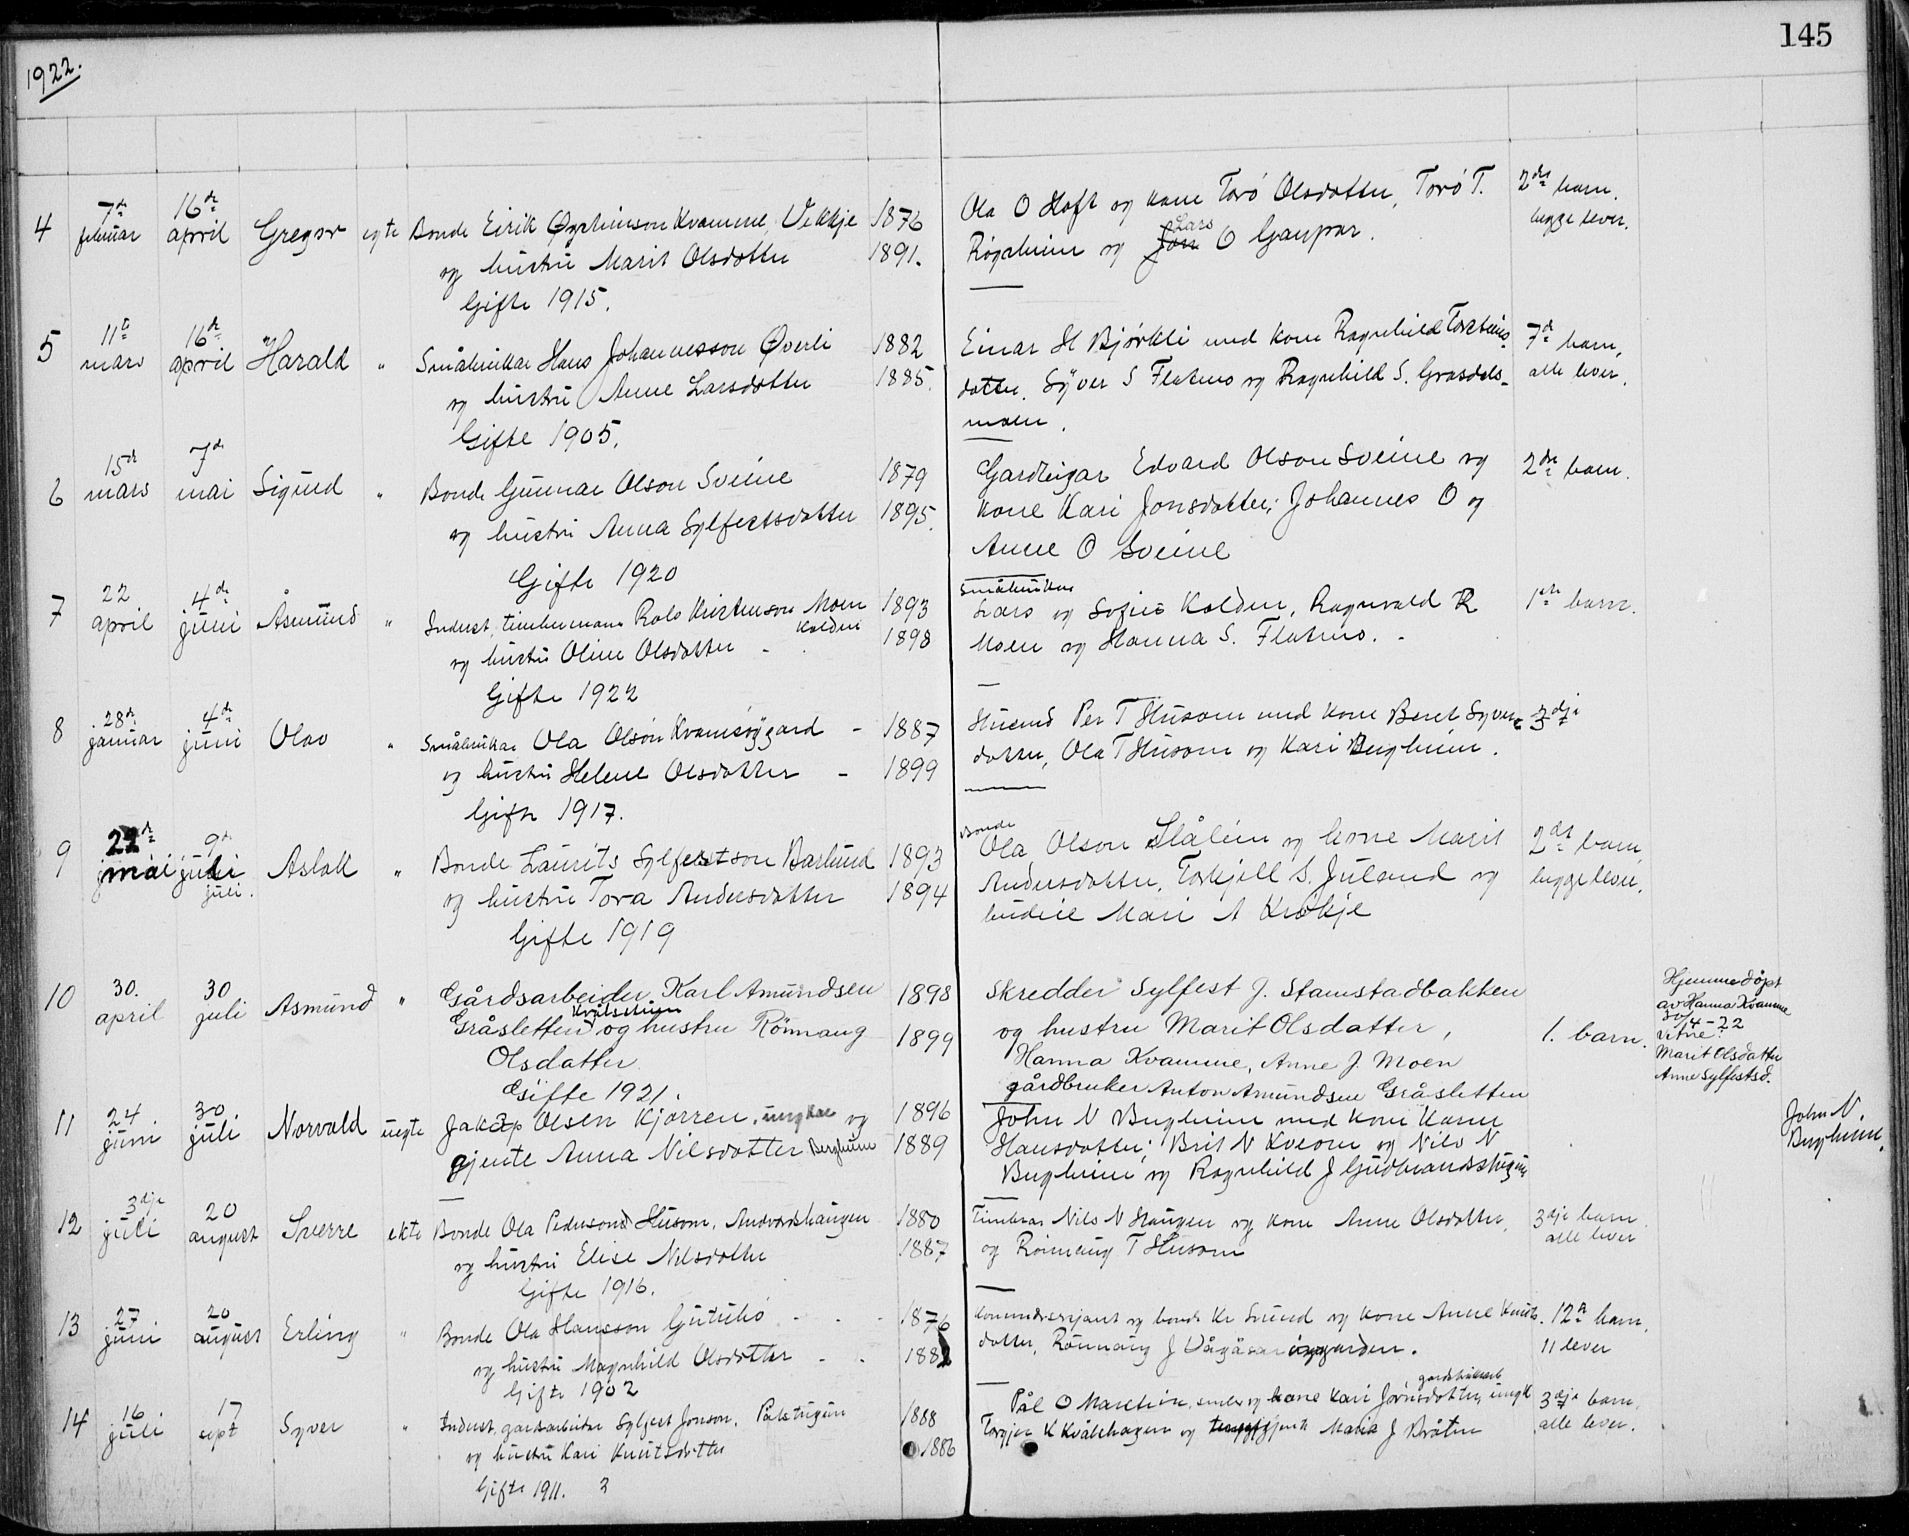 145
1922.
4 7de februar 16de april Gregor egte Bonde Eirik Øysteinson Kvamme, Vekkje 1876 Ola O Hoft og kone Torø Olsdotter, Torø T. 2dre barn.
og hustru Marit Olsdotter 1891. Røysheim og Jon Lars O Gaupar. begge lever.
Gifte 1915.
5 11te mars 16de april Harald " Småbrukar Hans Johannesson Øverli 1882 Einar H Bjørkli med kone Ragnhild Torsteins- 7de barn,
og hustru Anne Larsdotter 1885. dotter. Syver S Flatmo og Ragnhild S. Grøsdals- alle lever.
Gifte 1905. moen.
6 15de mars 7de mai Sigurd " Bonde Gunnar Olson Sveine 1879 Gardeigar Edvard Olson Sveine og 2dre barn.
og hustru Anna Sylfestsdotter 1895. kone Kari Jonsdotter; Johannes O og
Anne O Sveine
Gifte 1920
7 22 april 4de juni Åsmund " Indust. timbermann Rolv Kristenson Moen 1893 Småbrukar Lars og Sofie Kolden, Ragnvald R 1ste barn.
og hustru Oline Olsdotter Kolden 1898 Moen og Hanna S. Flatmo.
Gifte 1922
8 28de januar 4de juni Olav " Småbrukar Ola Olson Kvamsøygard - 1887 Husmd Per T Husom med kone Beret Syvers 3dje
og hustru Helene Olsdotter - 1899 dotter, Ola T Husom og Kari Bergheim.
Gifte 1917.
9 22de mai 9de juli juli. Aslak " Bonde Laurits Sylfestson Barlund 1893 Bonde Ola Olson Slålien og kone Marit 2dre barn
og hustru Tora Andersdotter 1894 Andersdotter, Torkjell S. Juland og begge lever.
Gifte 1919 budeie Mari A Krøkje
10 30. april 30 juli Asmund " Gårdsarbeider Karl Amundsen 1898 Skredder Sylfest J. Stamstadbakken
Gråsletten og hustru Rønnaug 1899 og hustru Marit Olsdatter, 1. barn.
Olsdatter Hanna Kvamme, Anne J. Moen
Gifte 1921. gårdbruker Anton Amundsen Gråsletten
Hjemmedøpt
av Hanna Kvamme
30/4-22
Vitne:
Marit Olsdatter
Anne Sylfestsd.
11 24 juni 30 juli Norvald uegte Jakop Olsen Kjørren, ungkar og 1896 John N Bergheim med kone Karen
gjente Anna Nilsdotter Bergheim 1889 Hansdotter; Brit N Kveom og Nils N
Bergheim og Ragnhild J Gudbrandsstugun
John N.
Bergheim.
12 3dje juli 20 august Sverre ekte Bonde Ola Pederson Husom, Andvordshaugen 1880 Timbrar Nils N Haugen og kone Anne Olsdotter, 3dje barn
og hustru Elise Nilsdotter 1887 og Rønnaug T Husom alle lever
Gifte 1916.
13 27 juni 20 august Erling " Bonde Ola Hansson Gutulio - - - 1876 Kommandersjant og bonde Kr Svund og kone Anne Knuts- 12te barn,
og hustru Magnhild Olsdotter - - 1882 dotter, Rønnaug J Vågåsar garden. 11 lever
Gifte 1902
14 16 juli 17 sept Syver " Indust. gardsarbeidar Sylfest Jonson, Pålstugun 1888 Pål O Marstein, smler og kone Kari Jørnsdotter, gardsbrukarar ungk 3dje barn,
og hustru Kari Knutsdotter 1886 Torgjer K Kvålshagen og gjente Maria J Bråten alle lever.
Gifte 1911.